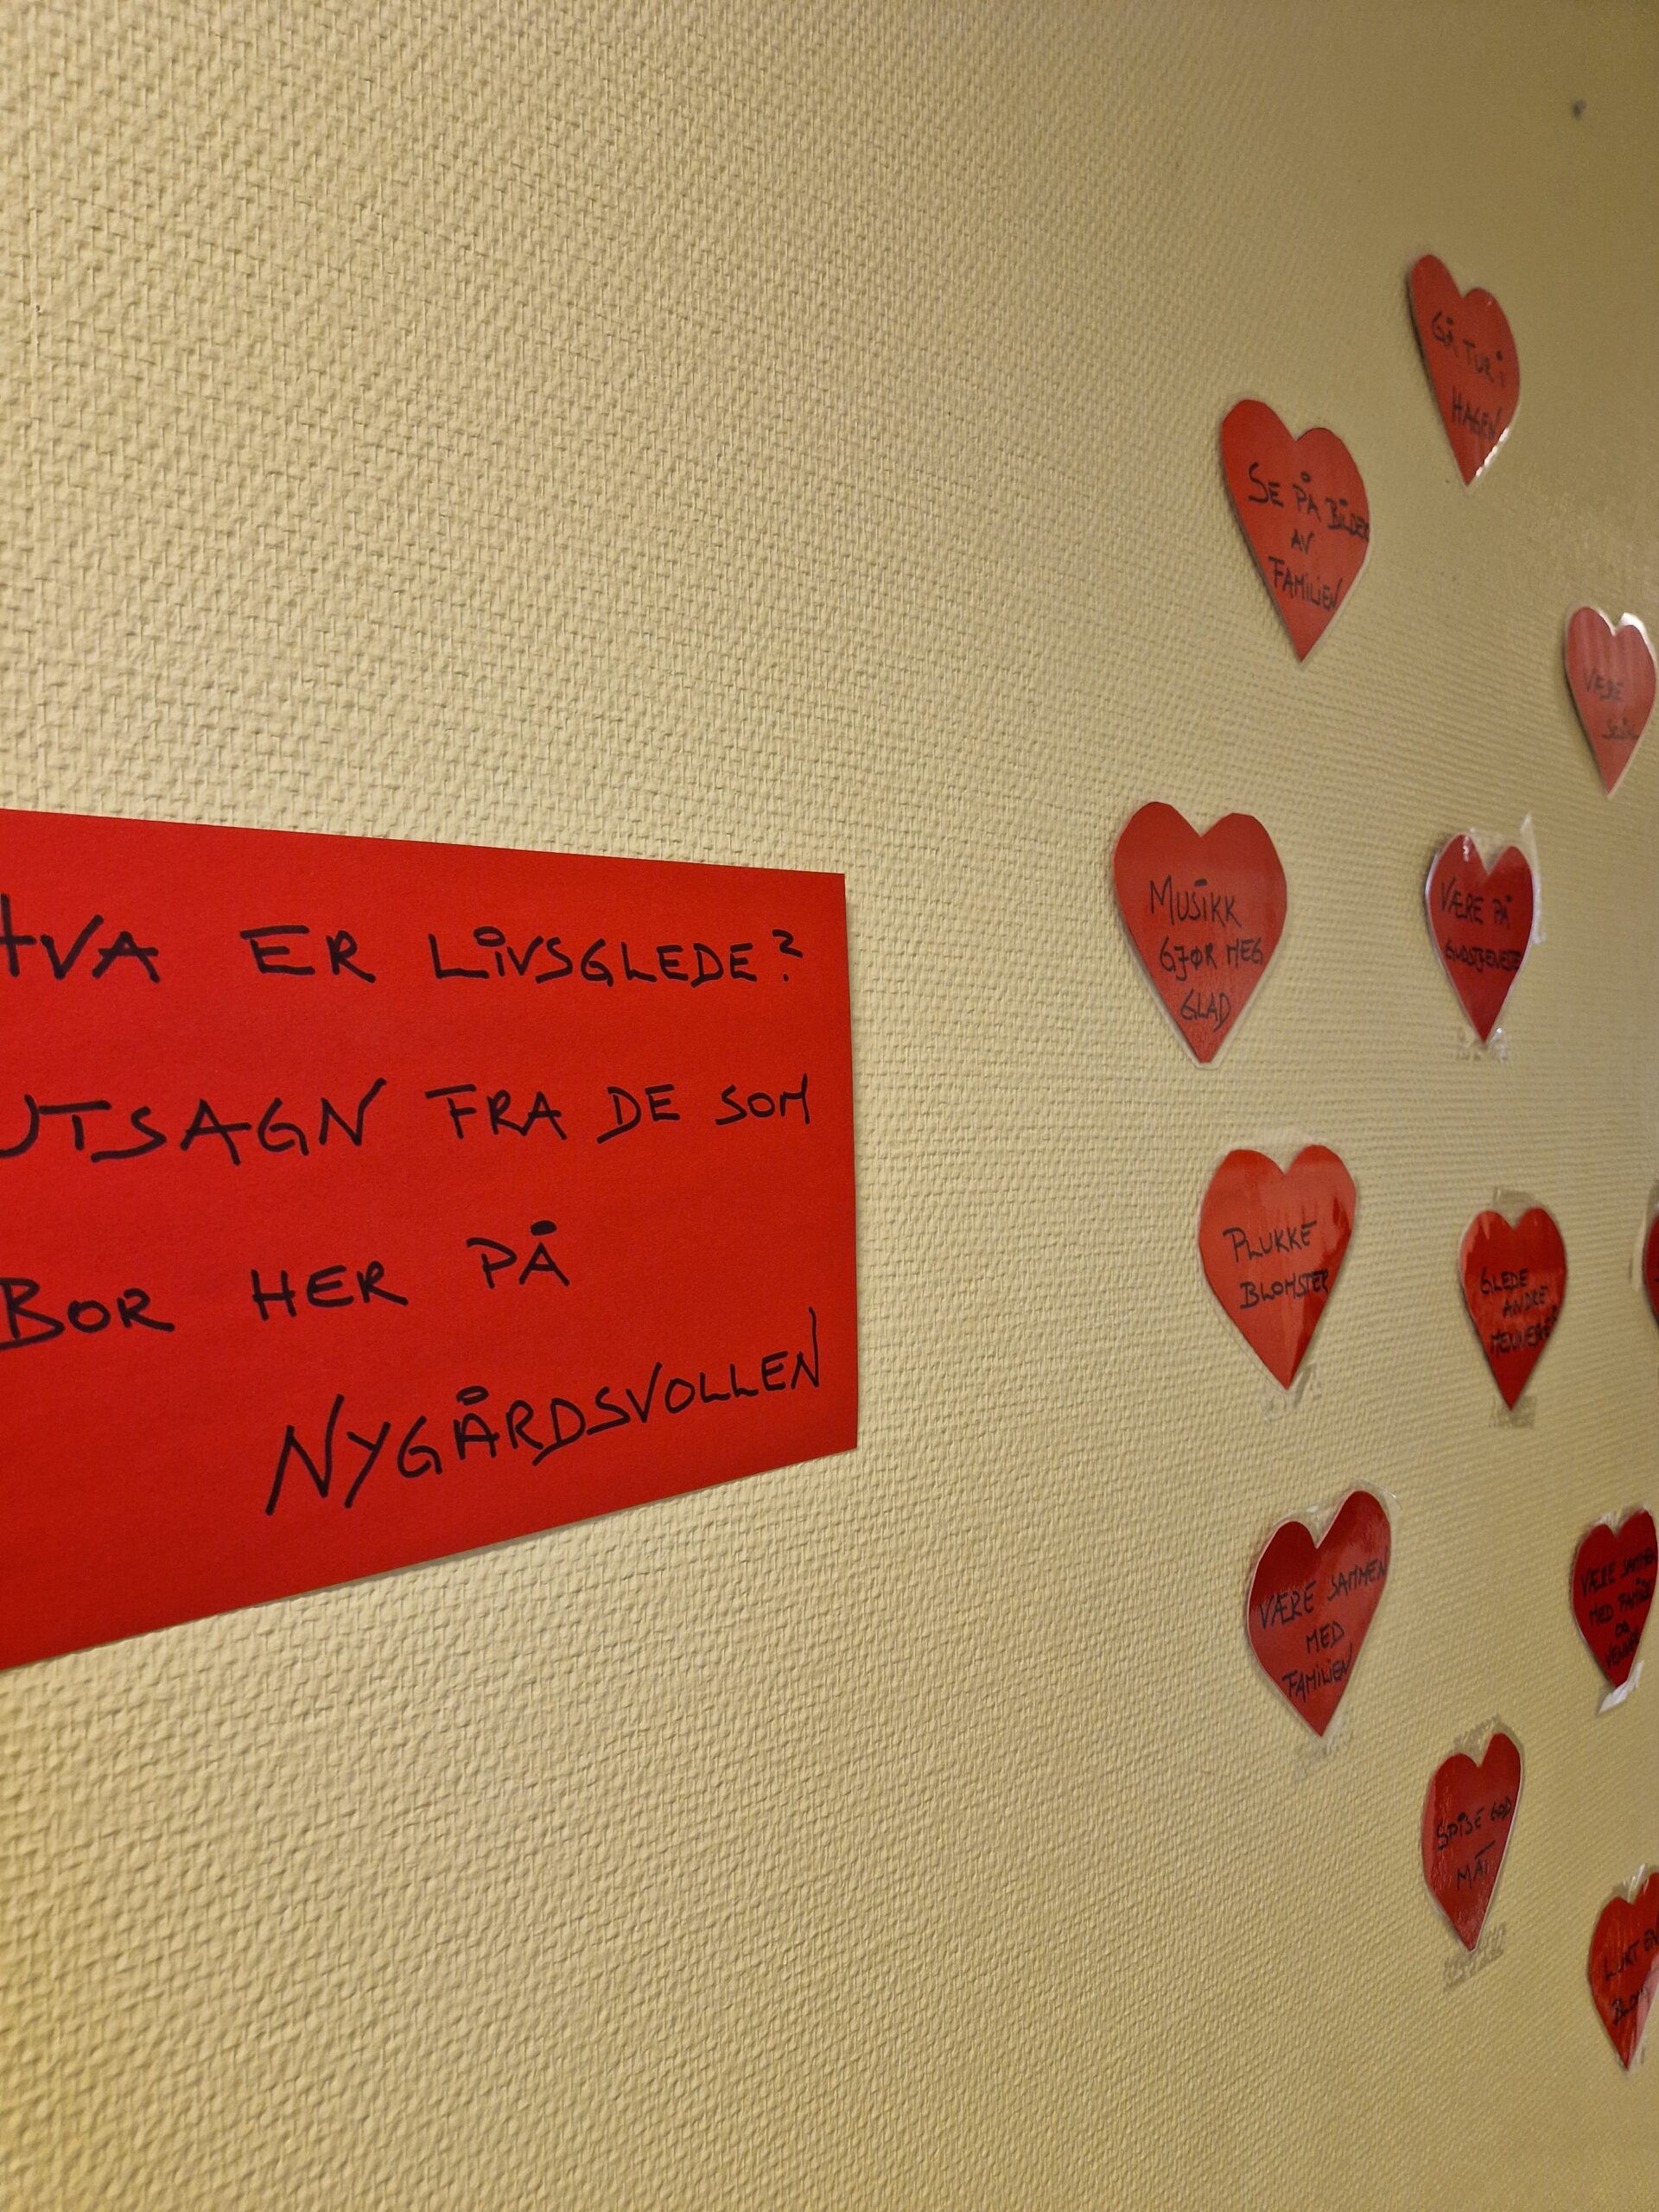 HVA ER LIVSGLEDE?
UTSAGN FRA DE SOM
BOR HER PÅ
NYGÅRDSVOLLEN
GÅ TUR I
HAGEN
SE PÅ BILDER
AV
FAMILIEN
VÆRE
MUSIKK
GJØR MEG
GLAD
VÆRE PÅ
GUDSTJENESTE
PLUKKE
BLOMSTER
GLEDE
ANDRE
MENNESKER
VÆRE SAMMEN
MED
FAMILIEN
VÆRE SAMMEN
MED FAMILIE
OG
VENNER
SPISE GOD
MAT